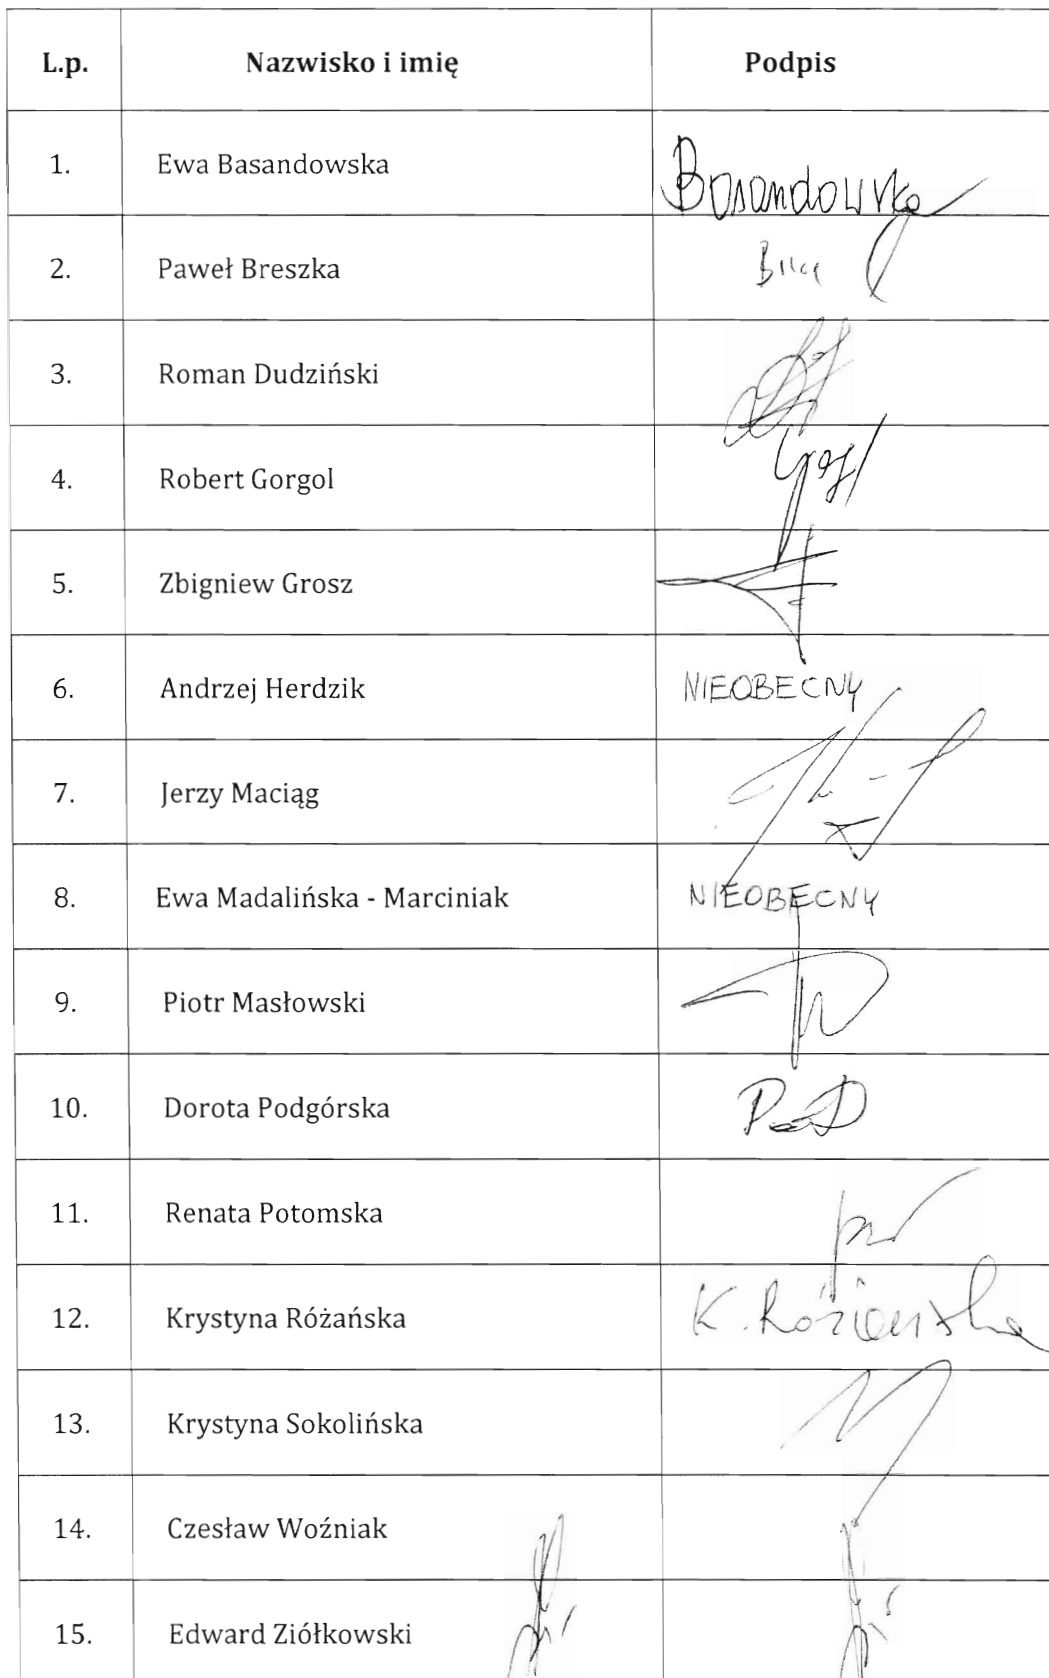 L.p. Nazwisko i imię Podpis
1. Ewa Basandowska Basandowska
2. Paweł Breszka
3. Roman Dudziński
4. Robert Gorgol
5. Zbigniew Grosz
6. Andrzej Herdzik NIEOBECNY
7. Jerzy Maciąg
8. Ewa Madalińska - Marciniak NIEOBECNY
9. Piotr Masłowski
10. Dorota Podgórska
11. Renata Potomska
12. Krystyna Różańska K. Różańska
13. Krystyna Sokolińska
14. Czesław Woźniak
15. Edward Ziółkowski